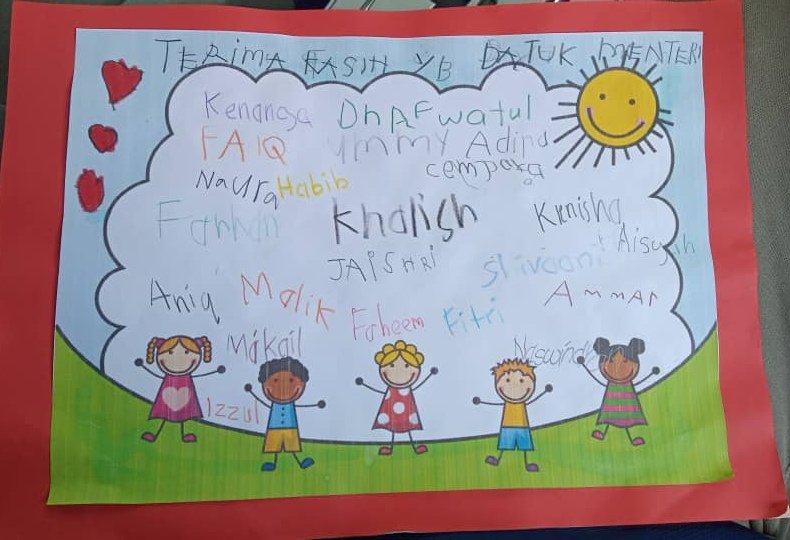 TERIMA KASIH YB DATUK MENTERI
Kenanga Dhafwatul
FAIQ Ummy Adina
cempaka
Naura Habib
Farhan Khalish Kenisha
Aisyah
JAISHRI Slivaani
Aniq Malik AMMAR
Faheem Fitri
Mikail
Izzul